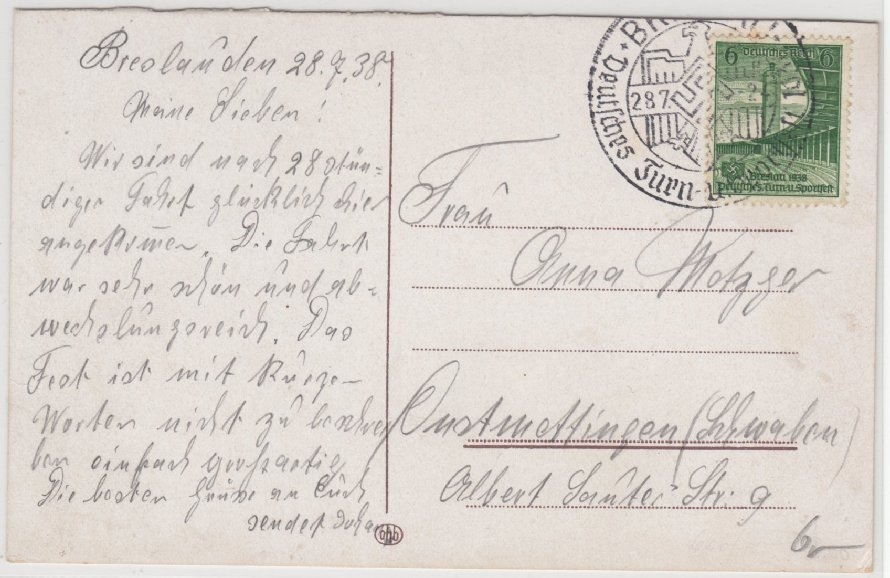 Breslau den 28.7.38.
Meine Lieben!
Wir sind nach 28 stün-
diger Fahrt glücklich hier
angekom̅en. Die Fahrt
war sehr schön und ab-
wechslungsreich. Das
Fest ist mit kurzen
Worten nicht zu beschrei
ben einfach großartig
Die besten Grüße an Euch
sendet
Frau
Anna Metzger
Onstmettingen (Schwaben)
Albert Sauter Str. 9
Deutsches Turn-u
287
6 Deutsches Reich 6
Breslau 1938
Deutsches Turn-u. Sportfest